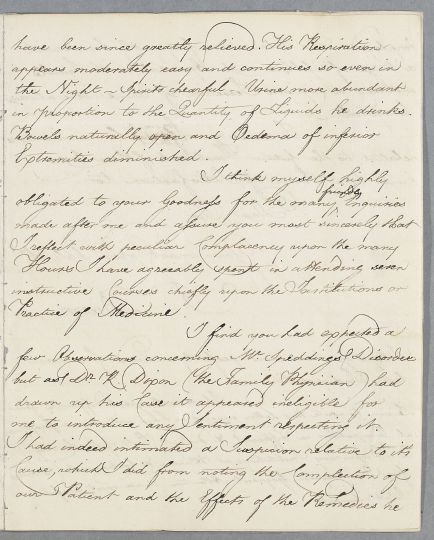 have been since greatly relieved. His Respiration
appears moderately easy and continues so even in
the Night – Spirits chearful – Urine more abundant
in proportion to the Quantity of Liquids he drinks.
Bowels naturally open and Oedema of inferior
Extremities diminished.
I think myself highly
obligated to your Goodness for the many friendly Inquiries
made after me and assure you most sincerely that
I reflect with peculiar Complacency upon the many
Hours I have agreeably spent in attending seven
instructive Courses chiefly upon the Institutions or
Practice of Medicine.
I find you had expected a
few Observations concerning Mr. Speddings Disorder
but as Dr. R. Dixon (the Family Physician) had
drawn up his Case it appeared ineligible for
me to introduce any Sentiment respecting it.
I had indeed intimated a Suspicion relative to its
Cause, which I did from noting the Complection of
our Patient and the Effects of the Remedies he